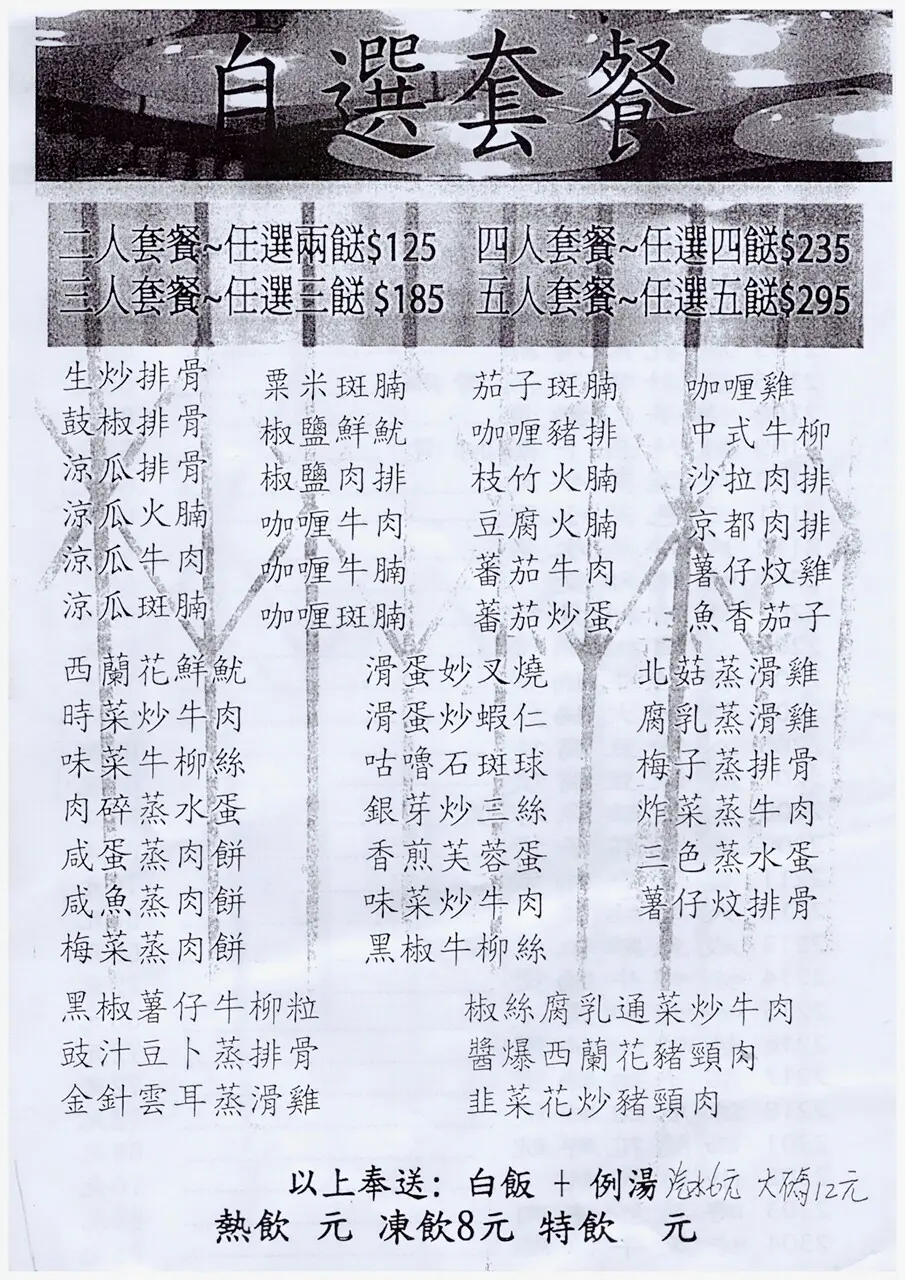 自選套餐
二人套餐~任選兩餸$125 四人套餐~任選四餸$235
三人套餐~任選三餸 $185 五人套餐~任選五餸$295
生炒排骨 粟米斑腩 茄子斑腩 咖喱雞
鼓椒排骨 椒鹽鮮魷 咖喱豬排 中式牛柳
涼瓜排骨 椒鹽肉排 枝竹火腩 沙拉肉排
涼瓜火腩 咖喱牛肉 豆腐火腩 京都肉排
涼瓜牛肉 咖喱牛腩 蕃茄牛肉 薯仔炆雞
涼瓜斑腩 咖喱斑腩 蕃茄炒蛋 魚香茄子
西蘭花鮮魷 滑蛋妙叉燒 北菇蒸滑雞
時菜炒牛肉 滑蛋炒蝦仁 腐乳蒸滑雞
味菜牛柳絲 咕嚕石斑球 梅子蒸排骨
肉碎蒸水蛋 銀芽炒三絲 炸菜蒸牛肉
咸蛋蒸肉餅 香煎芙蓉蛋 三色蒸水蛋
咸魚蒸肉餅 味菜炒牛肉 薯仔炆排骨
梅菜蒸肉餅 黑椒牛柳絲
黑椒薯仔牛柳粒 椒絲腐乳通菜炒牛肉
豉汁豆卜蒸排骨 醬爆西蘭花豬頸肉
金針雲耳蒸滑雞 韭菜花炒豬頸肉
以上奉送：白飯 + 例湯 汽水6元 大樽12元
熱飲 元 凍飲8元 特飲 元